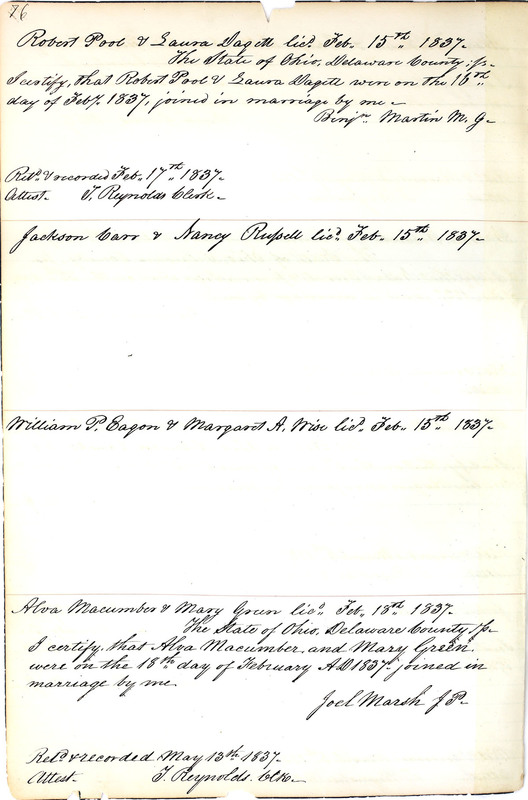 76
Robert Pool & Laura Dagett licd. Feb. 15th 1837.
The State of Ohio, Delaware County, ss.
I certify, that Robert Pool & Laura Dagett were on the 16th
day of Feby. 1837, joined in marriage by me.
Benjn. Martin M. G.
Retd. & recorded Feb. 17th 1837.
Attest. T. Reynolds Clerk.
Jackson Carr & Nancy Russell licd. Feb. 15th 1837.
William P. Eagon & Margaret A. Wise licd. Feb. 15th 1837.
Alva Macumber & Mary Green licd. Feb. 18th 1837.
The State of Ohio, Delaware County ss.
I certify, that Alva Macumber and Mary Green
were on the 18th day of February AD 1837. joined in
marriage by me.
Joel Marsh J P.
Retd. & recorded May 13th 1837.
Attest. T. Reynolds. Clk.